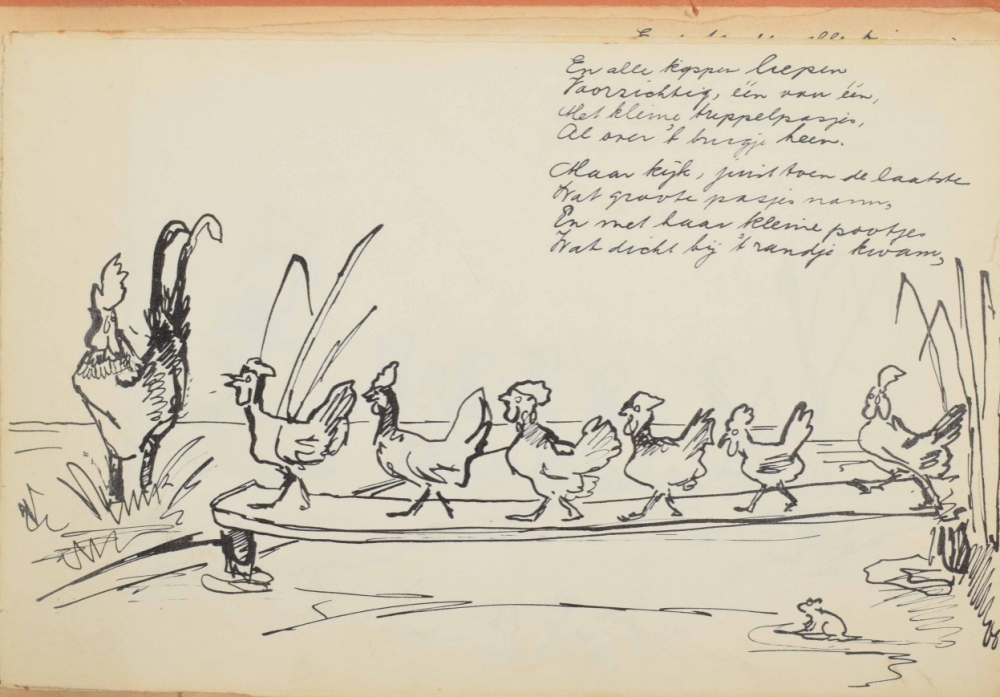 En alle kippen liepen
Voorzichtig, één voor één,
Met kleine trippelpasjes,
Al over 't brugje heen.
Maar kijk, juist toen de laatste
Wat groote pasjes nam,
En met haar kleine pootjes
Wat dicht bij 't randje kwam,